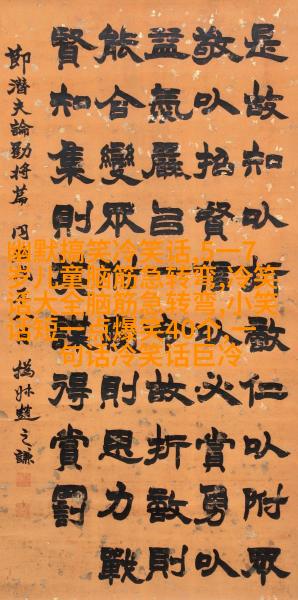 是故知以折敵仁以附眾
敬以招賢以必賞勇以
益氣嚴㠯令故折敵則
能合變眾則恩力戰
賢知集則謀得賞罰
節潛夫論勸將篇
撝叔趙之謙
幽默搞笑冷笑话,5一7
岁儿童脑筋急转弯,冷笑
话大全脑筋急转弯,小笑
话短一点爆笑40个,一
句话冷笑话巨冷